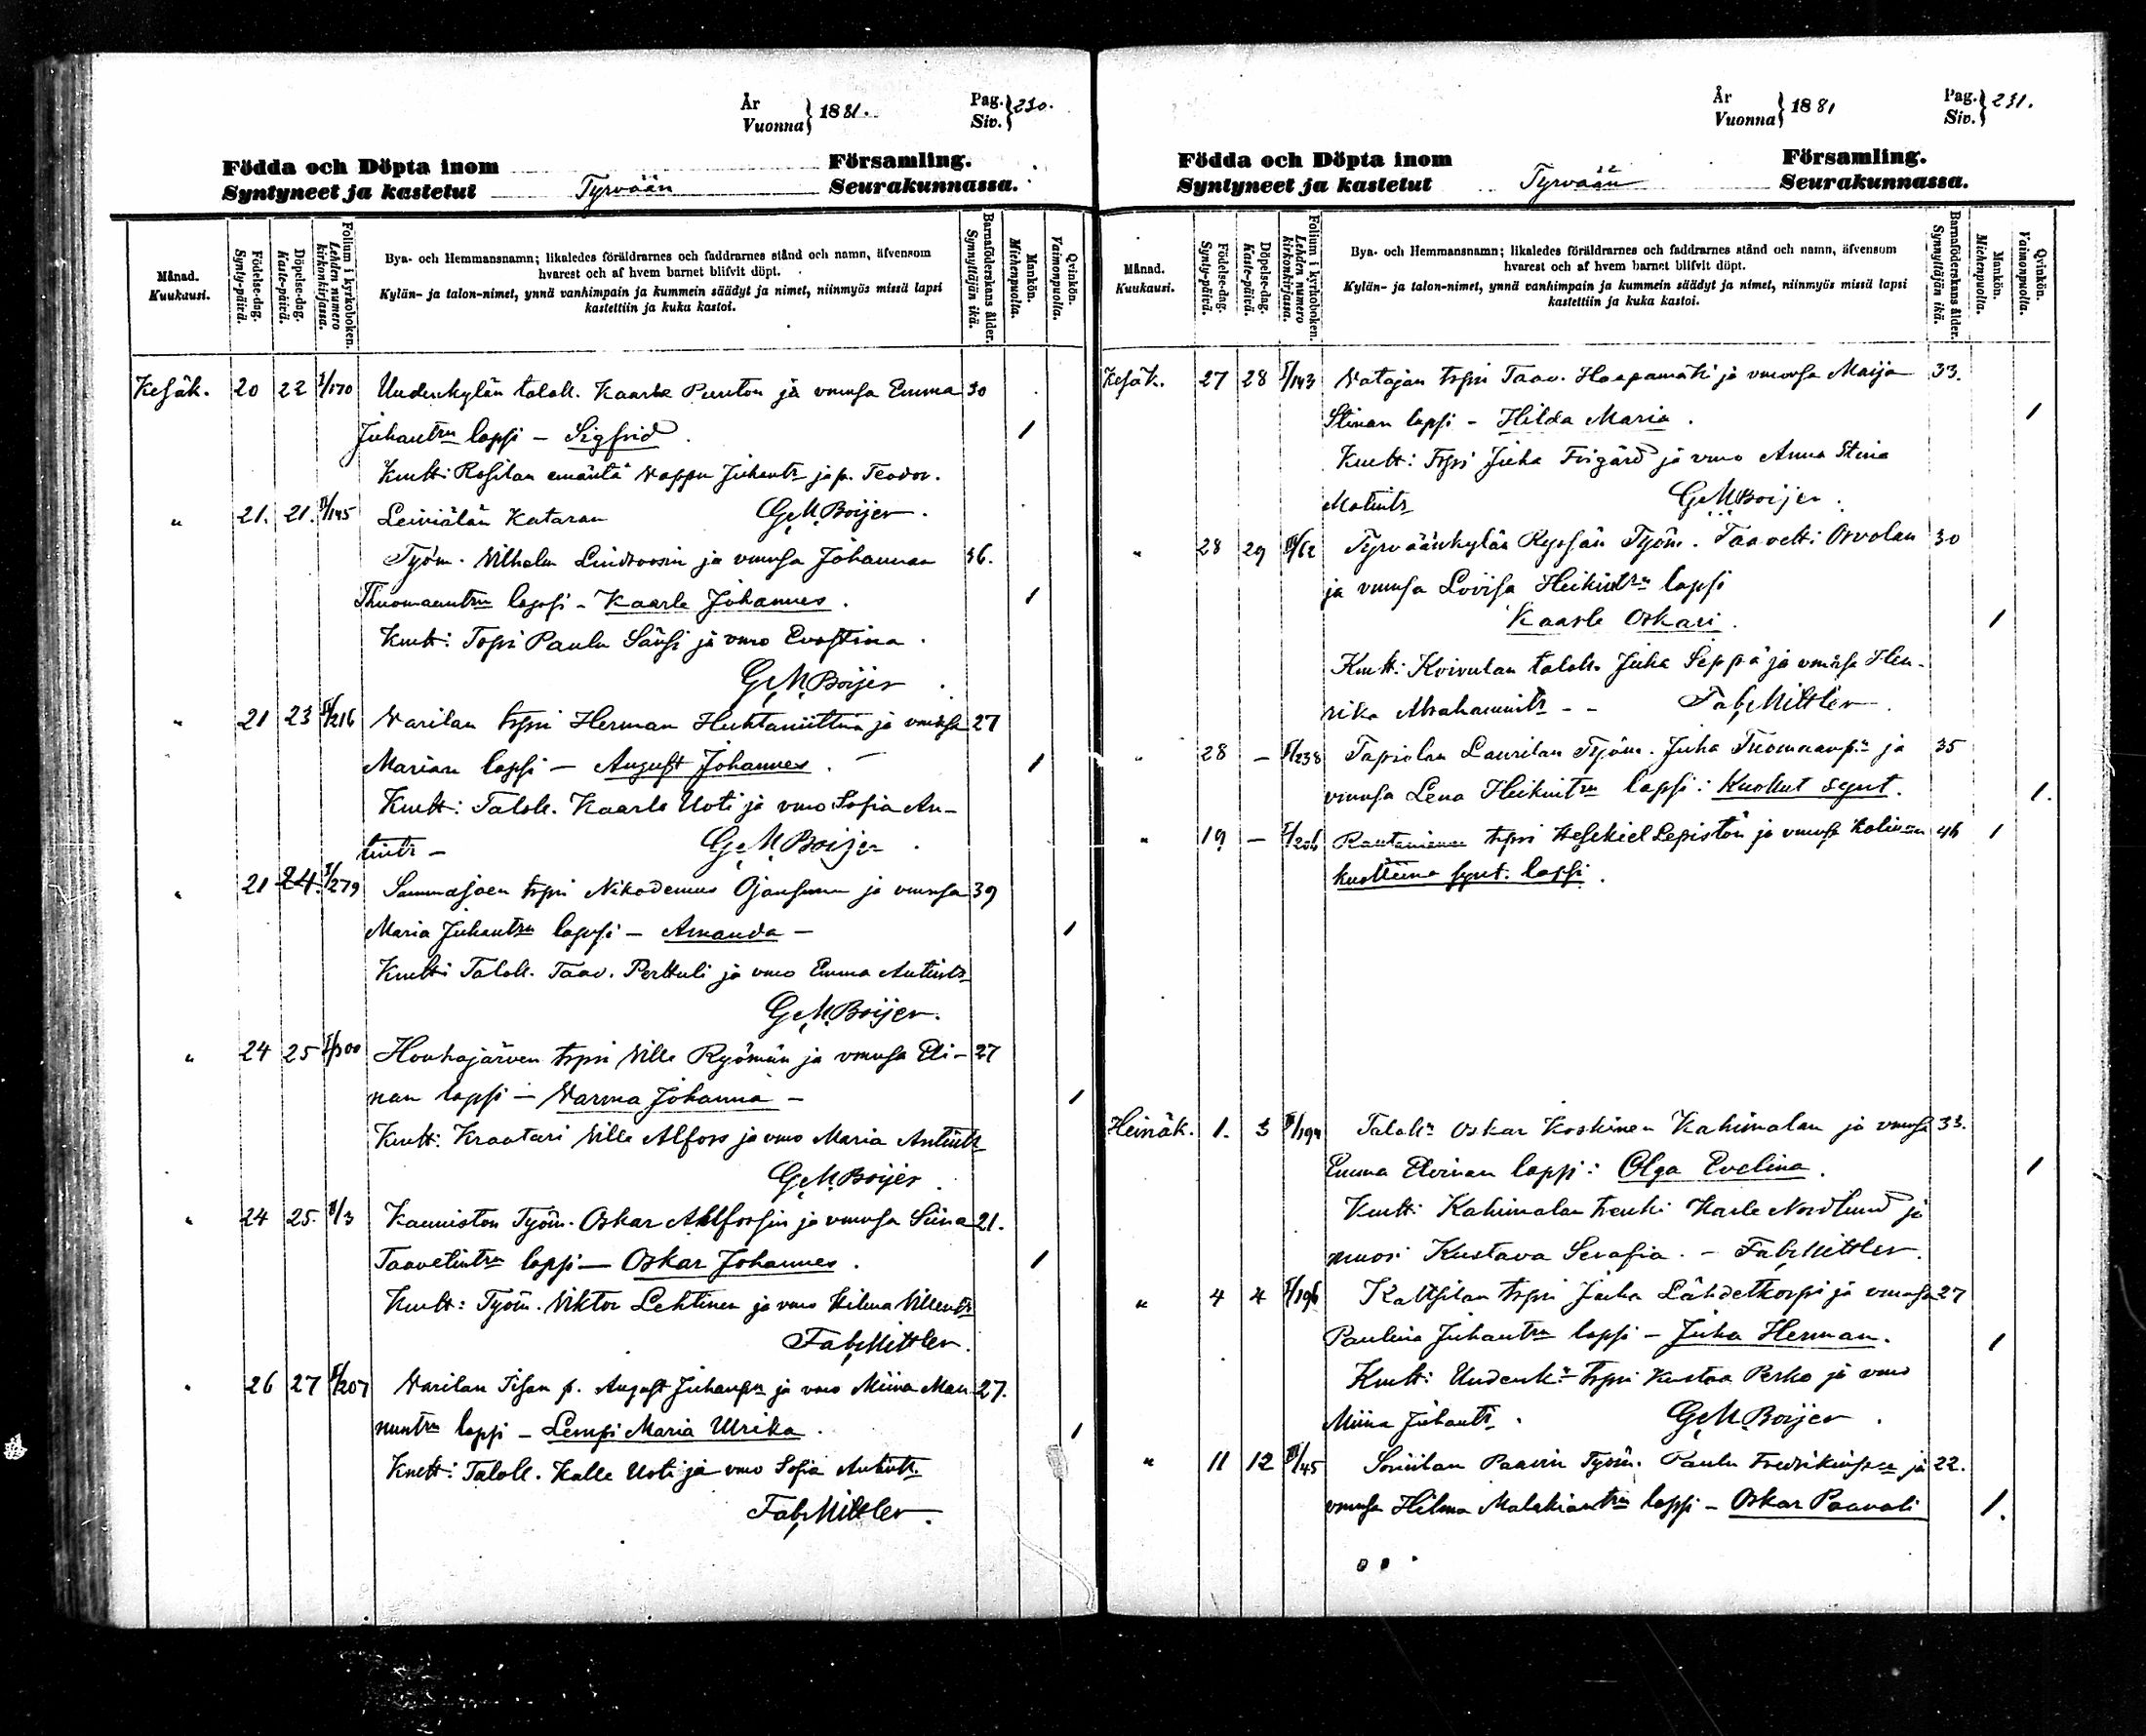 År
Vuonna } 1881.
Pag.
Siv. } 230.
Födda och Döpta inom Församling.
Syntyneet ja kastetut Tyrvään Seurakunnassa.
Månad.
Kuukausi.
Födelse-dag.
Synty-päivä.
Döpelse-dag.
Kaste-päivä.
Folium i kyrkoboken.
Lehden numero
kirkonkirjassa.
Bya- och Hemmansnamn; likaledes föräldrarnes och faddrarnes stånd och namn, äfvensom
hvarest och af hvem barnet blifvit döpt.
Kylän- ja talon-nimet, ynnä vanhimpain ja kummein säädyt ja nimet, niinmyös missä lapsi
kastettiin ja kuka kastoi.
Barnaföderskans ålder.
Synnyttäjän ikä.
Mankön.
Miehenpuolta.
Qvinkön.
Vaimonpuolta.
Kesäk. 20 22 I/170 Uudenkylän taloll. Kaarle Punton ja vmonsa Emma 30
Juhantrn lapsi – Sigfrid. 1
Kmtt: emäntä Vappu Juhantr ja p. Teodor.
" 21. 21. II/145 Leiniälän Kataran GM Boijer.
Työm. Vilhelm Lindroosin ja vmonsa Johannan 36.
Thuomaantrn lapsi – Kaarle Johannes. 1
Kmtt: Torpri Paulu Sänsi ja vmo Evastina.
GM Boijer
" 21 23 II/216 Varilan trpri Herman Huhtaniittun ja vmonsa 27
Marian lapsi – August Johannes. 1
Kmtt: Taloll. Kaarle Uoti ja vmo Sofia An-
tintr – GM Boijer.
" 21 24. I/279 Sammaljoen trpri Nikodemus Ojansuun ja vmonsa 39
Maria Juhantrn lapsi – Amanda – 1
Kmtt: Taloll. Taav. Perttuli ja vmo Emma Antintr
GM Boijer.
" 24 25 I/300 Houhajärven trpri Ville Ryömän ja vmonsa Eli- 27
nan lapsi – Varma Johanna – 1
Kmtt: Kraatari Ville Alfors ja vmo Maria Antintr
GM Boijer.
" 24 25. II/3 Kanniston Työm. Oskar Ahlforsin ja vmonsa Siina 21.
Taavetintrn lapsi – Oskar Johannes. 1
Kmtt: Työm. Viktor Lehtinen ja vmo Hilma Villentr
Fab. Mittler.
" 26 27 II/207 Varilan p. August Juhanpn ja vmo Miina Man- 27.
nuntrn lapsi – Lempi Maria Ulrika. 1
Kmtt: Taloll. Kalle Uoti ja vmo Sofia Antintr.
Fab. Mittler.
År
Vuonna } 1881
Pag.
Siv. } 231.
Födda och Döpta inom Församling.
Syntyneet ja kastetut Tyrvään Seurakunnassa.
Månad.
Kuukausi.
Födelse-dag.
Synty-päivä.
Döpelse-dag.
Kaste-päivä.
Folium i kyrkoboken.
Lehden numero
kirkonkirjassa.
Bya- och Hemmansnamn; likaledes föräldrarnes och faddrarnes stånd och namn, äfvensom
hvarest och af hvem barnet blifvit döpt.
Kylän- ja talon-nimet, ynnä vanhimpain ja kummein säädyt ja nimet, niinmyös missä lapsi
kastettiin ja kuka kastoi.
Barnaföderskans ålder.
Synnyttäjän ikä.
Mankön.
Miehenpuolta.
Qvinkön.
Vaimonpuolta.
Kesäk. 27 28 I/143 Vatajan trpri Taav. Haapamäki ja vmonsa Maija 33.
Stinan lapsi – Hilda Maria. 1
Kmtt: Trpri Juha Frigård ja vmo Anna Stina
Matintr GM Boijer.
" 28 29 Tyrväänkylän Ryssän Työm. Taavetti Orvolan 30
ja vmonsa Lovisa Heikintrn lapsi
Kaarle Oskari. 1
Kmtt: Koivulan taloll. Juha Seppä ja vmonsa Hen-
rika Abrahamintr – – Fab. Mittler.
" 28 – II/238 Tapiolan Laurilan Työm. Juha Thomaanpn ja 35
vmonsa Lena Heikintrn lapsi: Kuollut synt. 1.
" 19 – I/206 trpri Hesekiel Lepistön ja vmonsa 46 1
kuolleena synt. lapsi.
Heinäk. 1. 3 Taloll. Oskar Koskinen Kahimalan ja vmonsa 33.
Emma Elvinan lapsi: Olga Evelina. 1
Kmtt: Kahimalan trenki Karle Nordlund ja
nuori Kustava Serafia. – Fab. Mittler.
" 4 4 I/196 Kaltsilan trpri Juha Lähdetkorpi ja vmonsa 27
Paulina Juhantrn lapsi – Juha Herman. 1
Kmtt: Uudenk. trpri Kustaa Perko ja vmo
Miina Juhantr. GM Boijer.
" 11 12 II/45 Soinilan Paavin Työm. Paulu Fredrikinpn ja 22.
vmonsa Hilma Malakiantrn lapsi – Oskar Paavali 1.